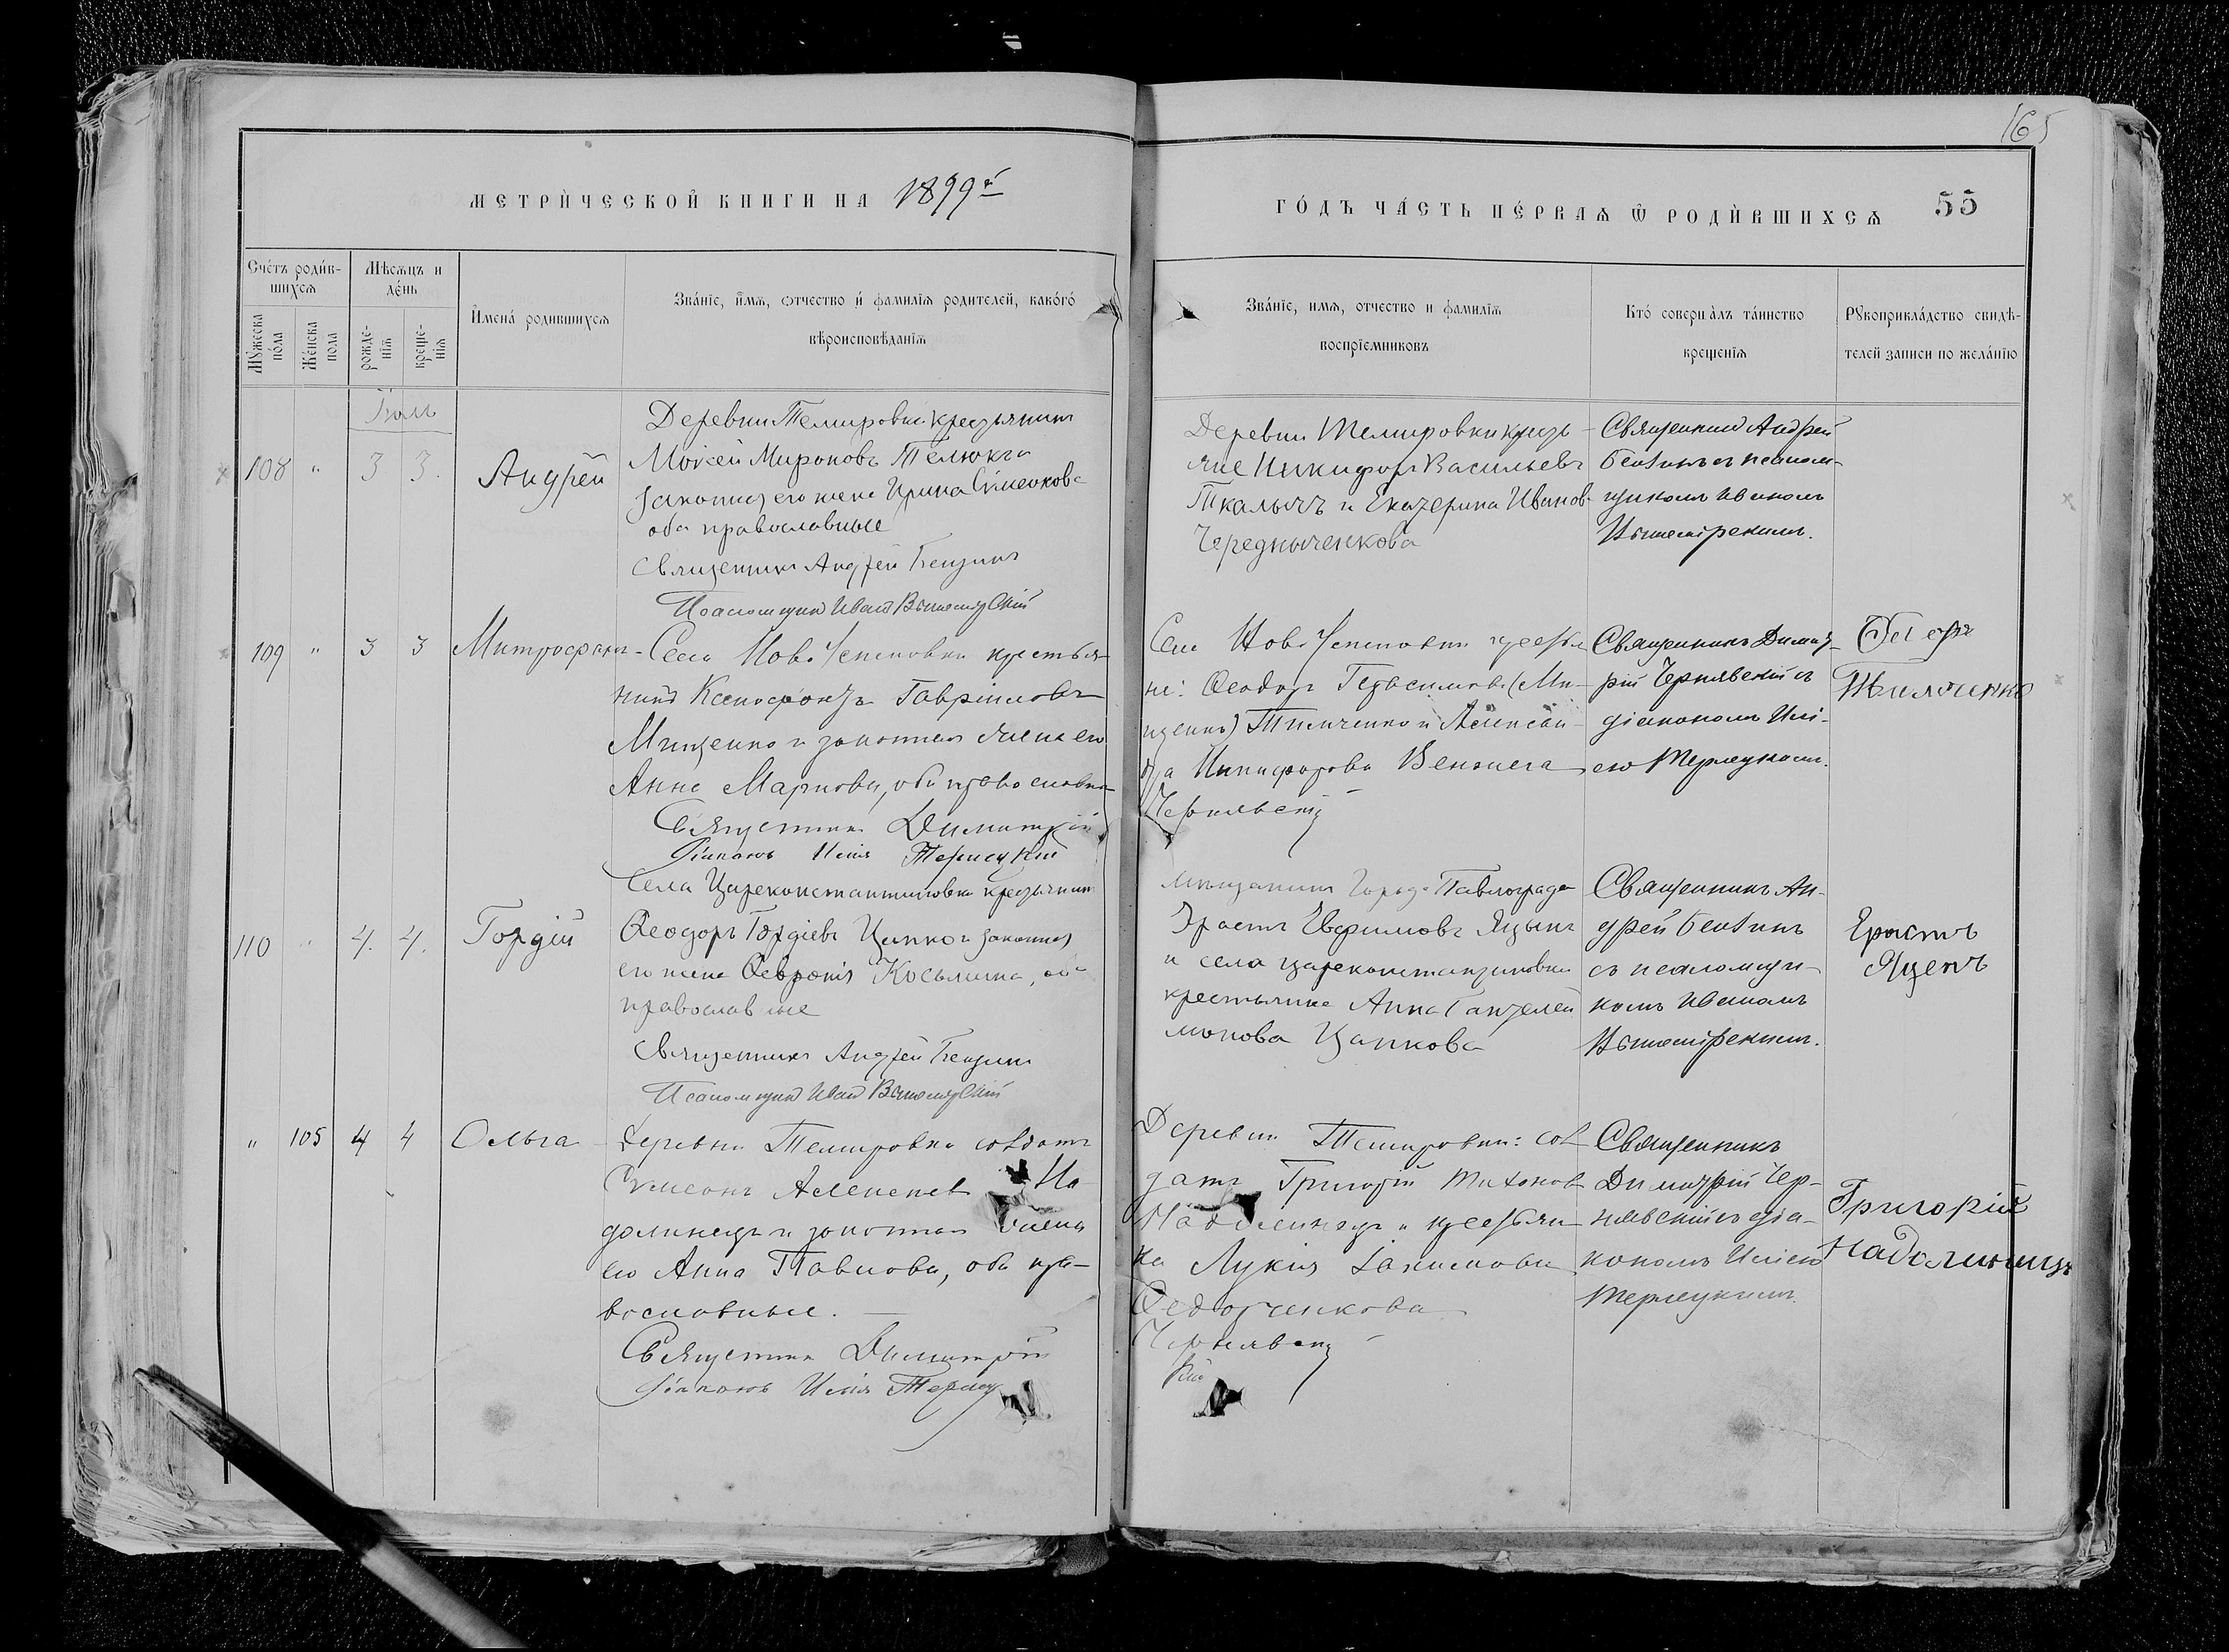 165
МЕТРИ́ЧЕСКОЙ КНИГИ НА 1899й
ГО́ДЪ ЧА́СТЬ ПЕ́РВАѦ Ѿ РОДИ́ВШИХСѦ 55
Сче́тъ роди́в-
шихсѧ
Мѣсѧцъ и
де́нь
Мꙋжеска
по́ла
Же́нска
пола
рожде-
нїѧ
креще-
нїѧ
Имена́ родившихсѧ
Зва́нїе, и́мѧ, ѻтчество и́ фамилїѧ родителей, како́гѡ́
вѣроисповѣданїѧ
Зва́нїе, имѧ, отчество и фамилїѧ
воспрїемниковъ
Кто́ соверша̀лъ та́инство
крещенїѧ
Рꙋкоприкла́дство свидѣ-
телей записи по жела́нїю
108 " 3 3. Андрей
Деревни Темировки крестьянинъ
Моисей Мироновъ Телюкъ и
законная его жена Ирина Сѵмеонова
оба православные
Священникъ Андрей Бензинъ
Псаломщикъ Иванъ
Деревни Темировки кресть-
яне Никифоръ Васильевъ
Ткалычъ и Екатерина Иванов-
Чередныченкова
Священникъ Андрей
съ псалом-
щикомъ Иваномъ
109 " 3 3 Митрофанъ
Села Ново Успеновки крестья-
нинъ Ксенофонтъ Гавріиловъ
Мищенко и законная жена его
Анна Маркова, оба православн
Священникъ Димитрій
Діаконъ Илія Терлецкій
Села Ново Успеновки крестья
не: Ѳеодоръ Герасимовъ (Ми-
щенко) Тимченко и Алексан-
дра Никифорова
Чернявскій
Священникъ Димит-
рій Чернявскій съ
діакономъ Илі-
ею Терлецкимъ.
Тимченко
110 " 4. 4. Гордій
Села Цареконстантиновки крестьянинъ
Ѳеодоръ Гордіевъ Цапко и законная
его жена Ѳевронія Косьмина, оба
православные
Священникъ Андрей Бензинъ
Псаломщикъ Иванъ
Мещанинъ города Павлограда
Эрастъ Евфимовъ Яцынъ
и села Цареконстантиновки
крестьянка Анна Пантелей
монова Цапкова
Священникъ Ан-
дрей
съ псаломщи-
комъ Иваномъ
Ерастъ
Яценъ
" 105 4 4 Ольга
Деревни Темировки солдатъ
Сѵмеонъ Алексеевъ На-
долинецъ и законная жена
его Анна Павлова, оба пра-
вославные.
Священникъ Димитрій
Діаконъ Илія Терлец
Деревни Темировки: сол
датъ Григорій Тихоновъ
Надолинецъ и крестьян
ка Лукія Іакимова
Ѳедорченкова
Чернявскій
кій
Священникъ
Димитрій Чер-
нявскій съ діа-
кономъ Иліею
Терлецкимъ.
Григорій
Надолинецъ